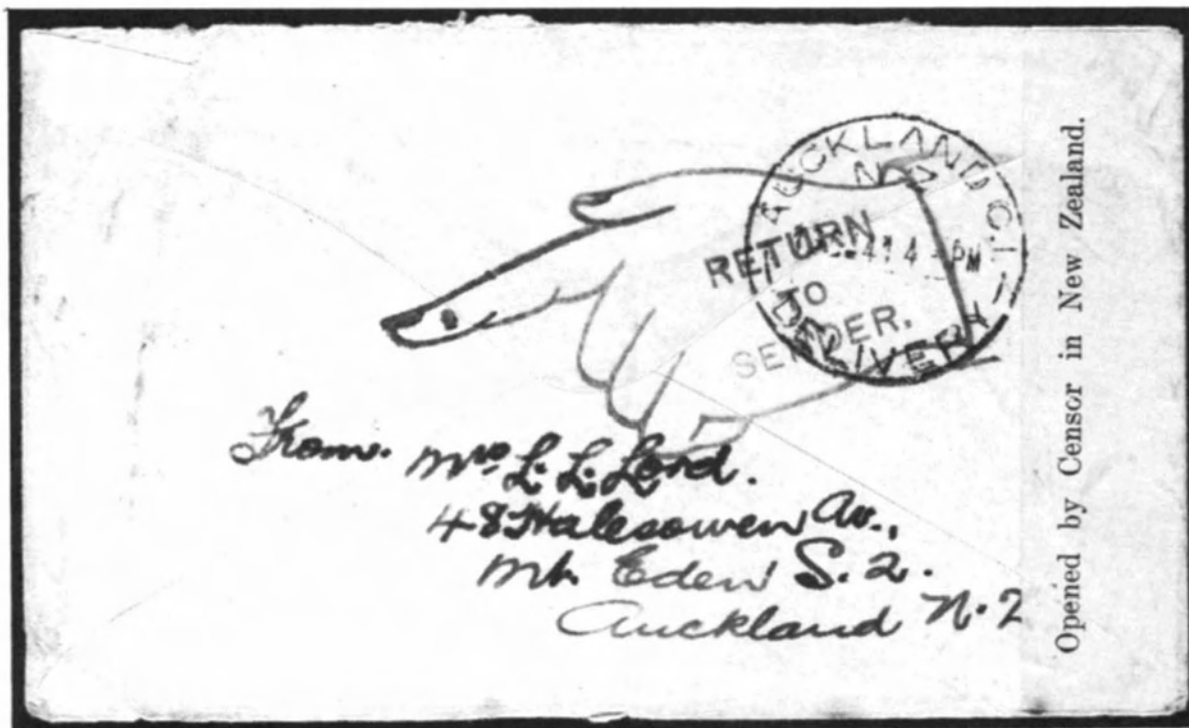 AUCKLAND C.1
N.Z.
41 4 - PM
DELIVERY
RETURN
TO
SENDER.
From. Mrs L. L. Lord.
48 Halesowen Av.,
Mt. Eden S. 2.
Auckland N.Z
Opened by Censor in New Zealand.